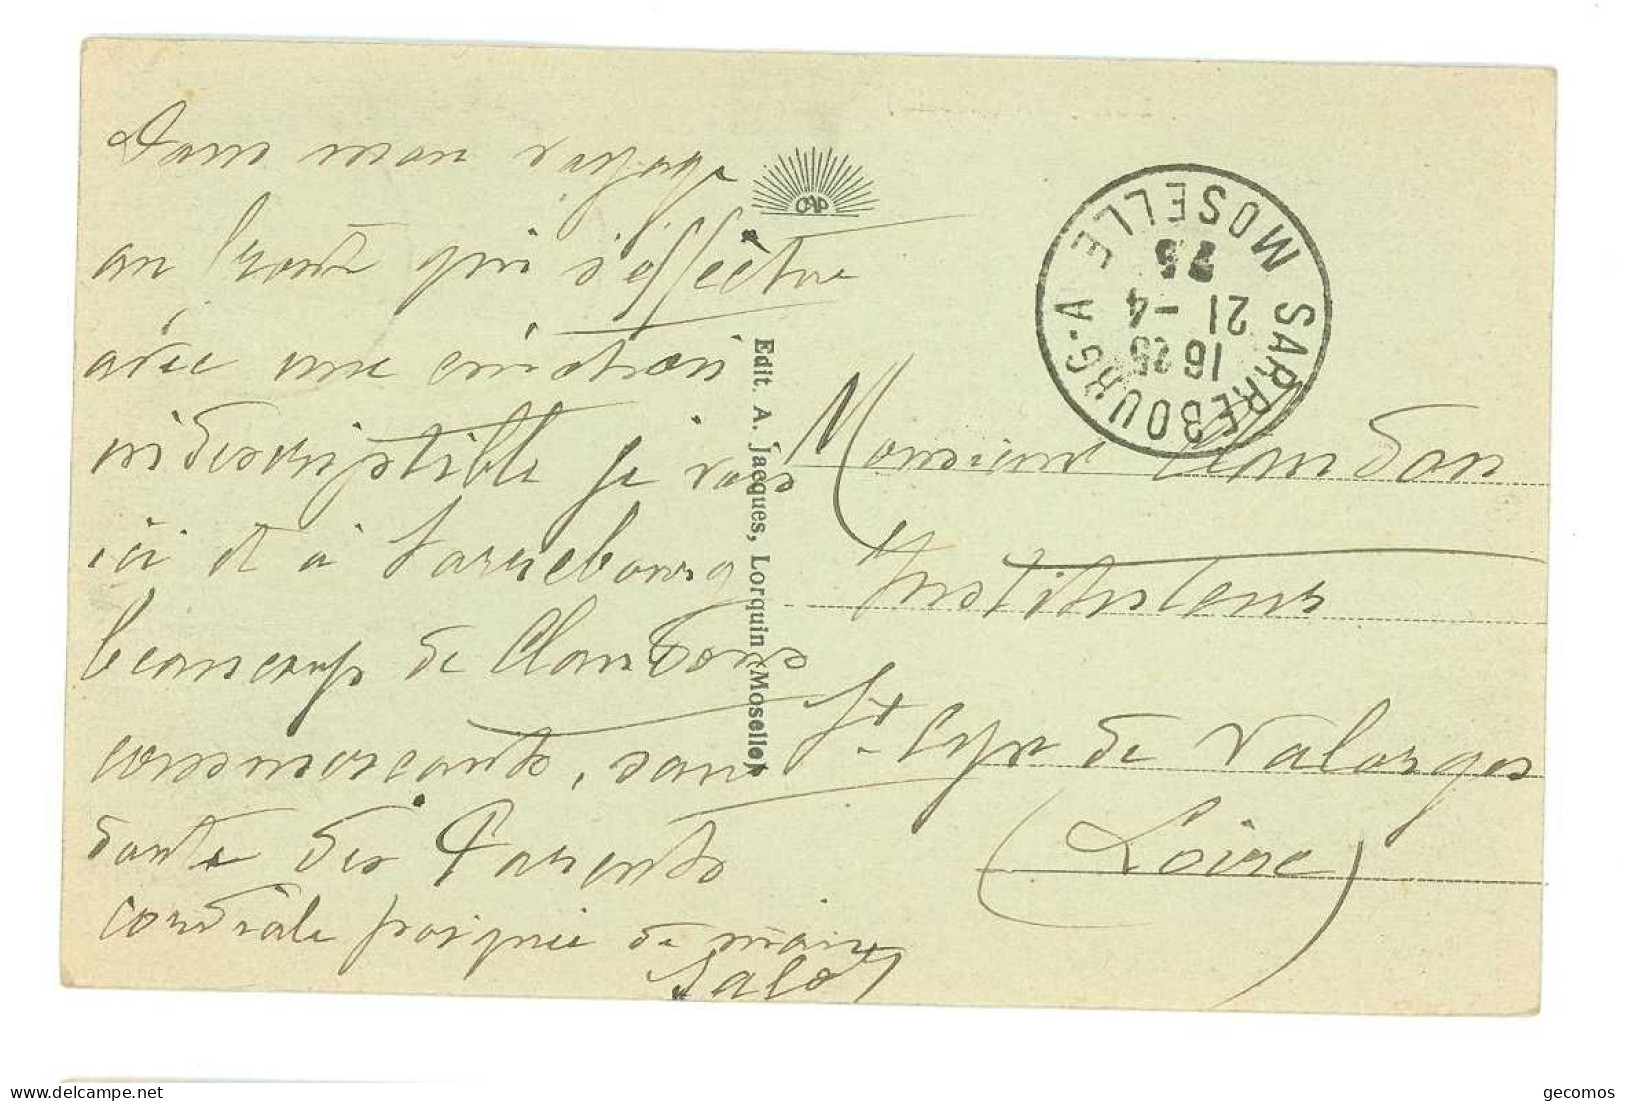 Dans mon voyage
au front qui s'effectue
avec une émotion
indescriptible je vois
ici et à Sarrebourg
beaucoup de Claudons
commerçants, sans
doute des Parents
cordiale poignée de main
Edit. A. Jacques, Lorquin (Moselle)
SARREBOURG-A MOSELLE
16 25
21 -4
25
Monsieur Claudon
Instituteur
St Cyr de Valorges
(Loire)
delcampe.net
gecomos